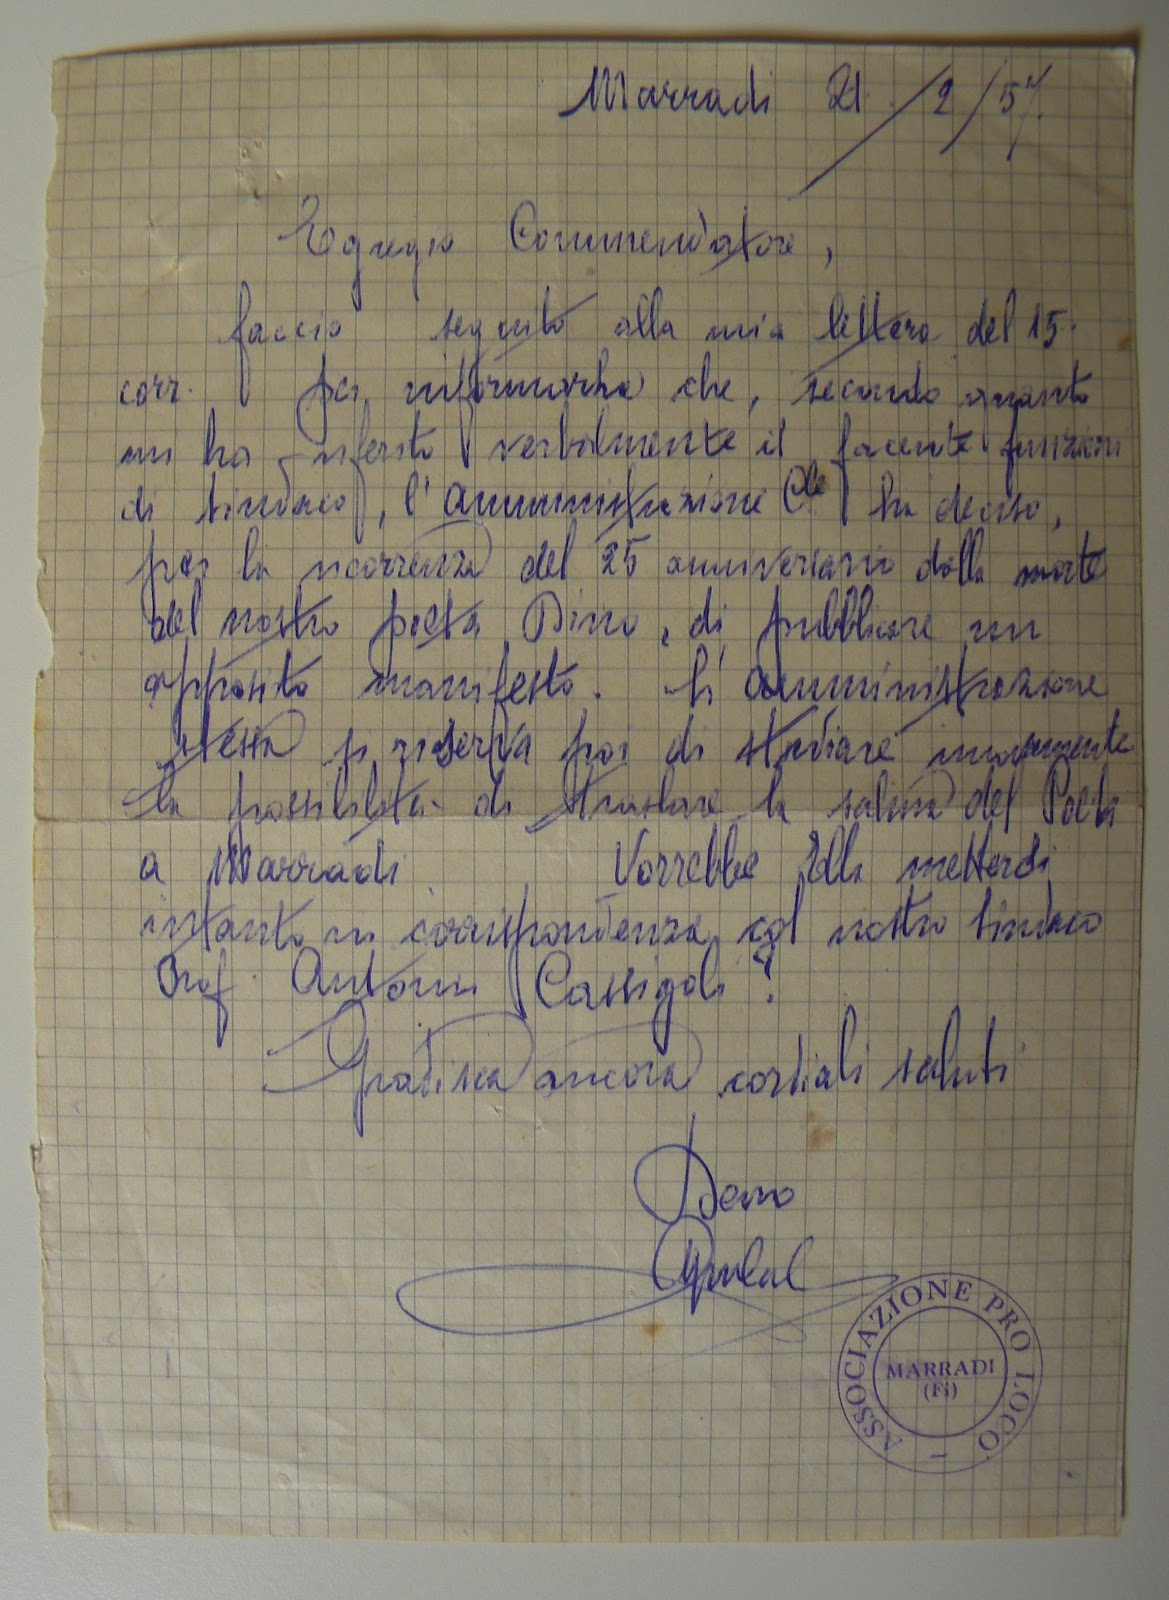 Marradi 21/2/57.
Egregio Commendatore,
faccio seguito alla mia lettera del 15.
corr. per informarLa che, secondo quanto
mi ha riferito verbalmente il facente funzioni
di Sindaco, l'Amministrazione Cle ha deciso,
per la ricorrenza del 25 anniversario dalla morte
del nostro poeta Dino, di pubblicare un
apposito manifesto. L'Amministrazione
stessa si riserva poi di studiare nuovamente
la possibilità di traslare la salma del Poeta
a Marradi. Vorrebbe Ella mettersi
intanto in corrispondenza col nostro Sindaco
Prof. Antonio Cassigoli?
Gradisca ancora cordiali saluti
ASSOCIAZIONE PRO LOCO -
MARRADI
(Fi)